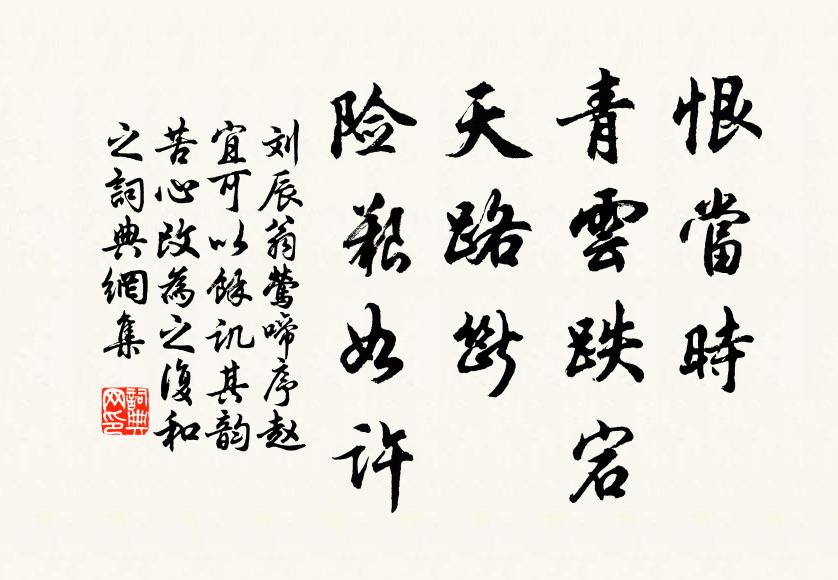 恨當時
青雲跌宕
天路斷
险艱如许
刘辰翁鶯啼序赵
宜可以餘讥其韵
苦心改為之復和
之詞典網集
詞典网印